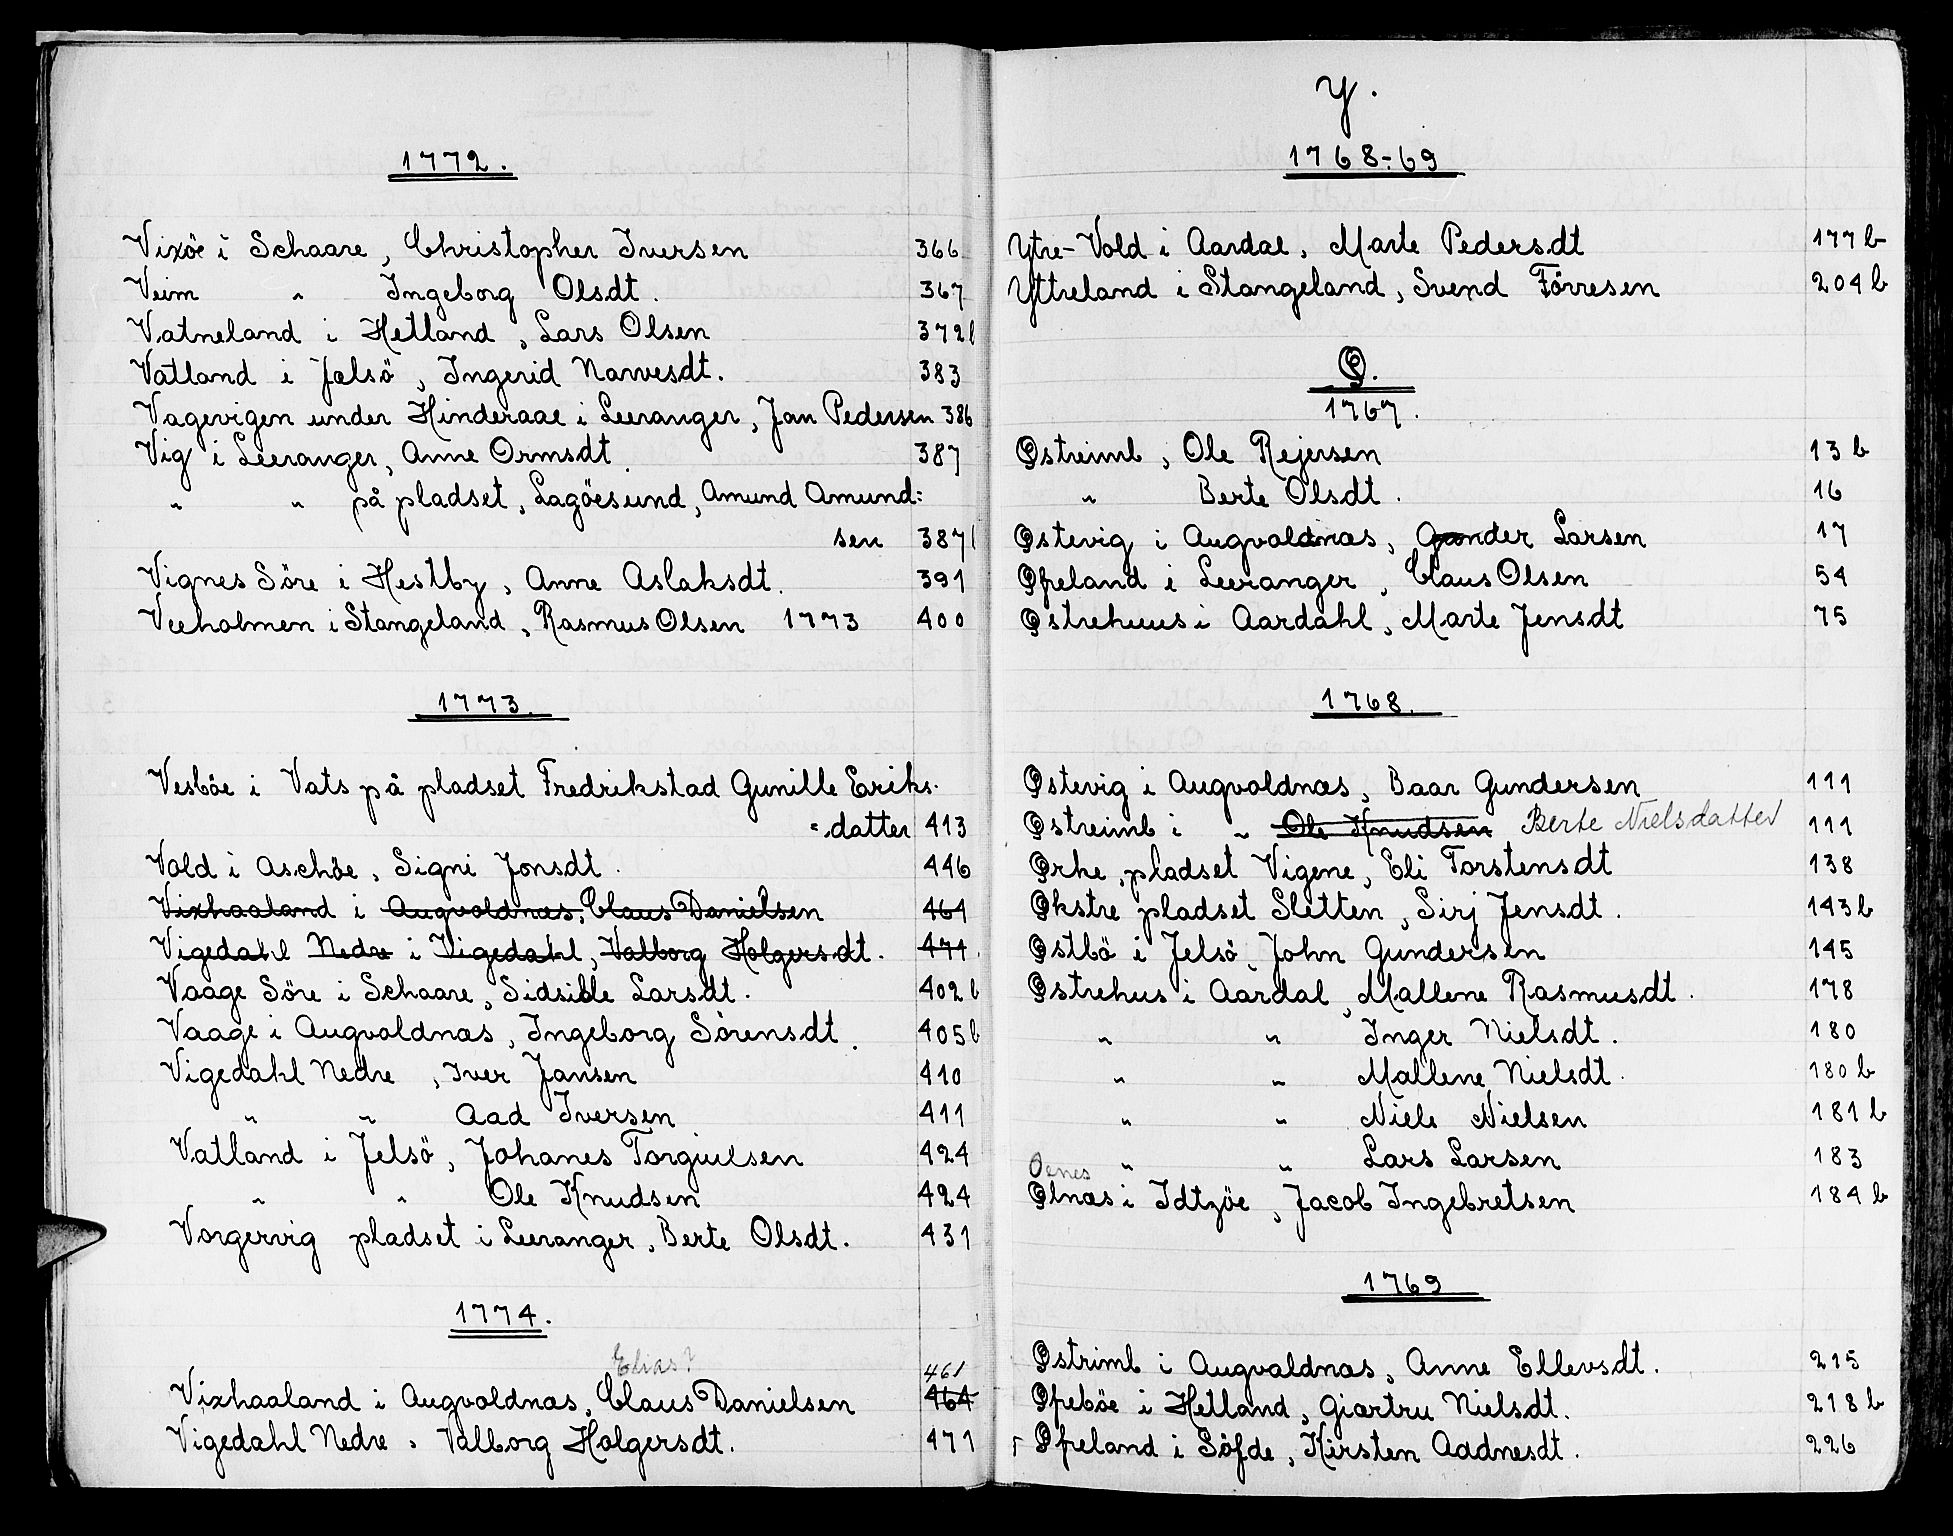 1772.
Vixöe i Schaare, Christopher Iversen 366
Veim " Ingeborg Olsdt. 367
Vatneland i Hetland, Lars Olsen 372b
Vatland i Jælsö, Ingerid Narvesdt. 383
Vagevigen under Hinderaae i Leeranger, Jan Pedersen 386
Vig i Leeranger, Anne Ormsdt. 387
" " på pladset, Lagöesund, Amund Amund:
sen 387b
Vignes Söre i Hestby, Anne Aslaksdt. 391
Veeholmen i Stangeland, Rasmus Olsen 1773 400
1773.
Vesböe i Vats på pladset Fredrikstad Gunille Eriks-
"datter 413
Vold i Aschöe, Signi Jonsdt. 446
Vixhaaland i Augvoldnæs, Claus Danielsen 464
Vigedahl Nedre i Vigedahl, Valborg Holgersdt. 471
Vaage Söre i Schaare, Sidsible Larsdt. 402b
Vaage i Augvoldnæs, Ingeborg Sörensdt. 405b
Vigedahl Nedre, Iver Jansen 410
" " Aad Iversen 411
Vatland i Jelsö, Johanes Torgiulsen 424
" " Ole Knudsen 424
Vorgervig pladset i Leeranger, Berte Olsdt. 431
1774.
Elias? 461
Vixhaaland i Augvoldnæs, Claus Danielsen 464
Vigedahl Nedre, Valborg Holgersdt. 471
Y.
1768-69
Ytre-Vold i Aardal, Marte Pedersdt 177b
Yttreland i Stangeland, Svend Förresen 204b
Ø.
1767.
Østreimb, Ole Rejersen 13b
" Berte Olsdt. 16
Østevig i Augvoldnæs, Gunder Larsen 17
Øfreland i Leeranger, Claus Olsen 54
Østrehuus i Aardahl, Marte Jensdt 75
1768.
Østevig i Augvoldnæs, Baar Gundersen 111
Østreimb i " Ole Knudsen Berte Nielsdatter 111
Ørke, pladset Vigene, Eli Torstensdt 138
Økstre pladset Sletten, Sirj Jensdt. 143b
Østbö i Jelsö, John Gundersen 145
Østrehus i Aardal, Mallene Rasmusdt. 178
" " Inger Nielsdt. 180
" " Mallene Nielsdt. 180b
" " Niels Nielsen 181b
" " Lars Larsen 183
Oenes
Ølnæs i Idtzöe, Jacob Ingebretsen 184b
1769
Østrimb i Augvaldnæs, Anne Ellevsdt. 215
Øfreböe i Hetland, Giærtru Nielsdt. 218b
Øfreland i Söfde, Kirsten Aadnesdt. 226